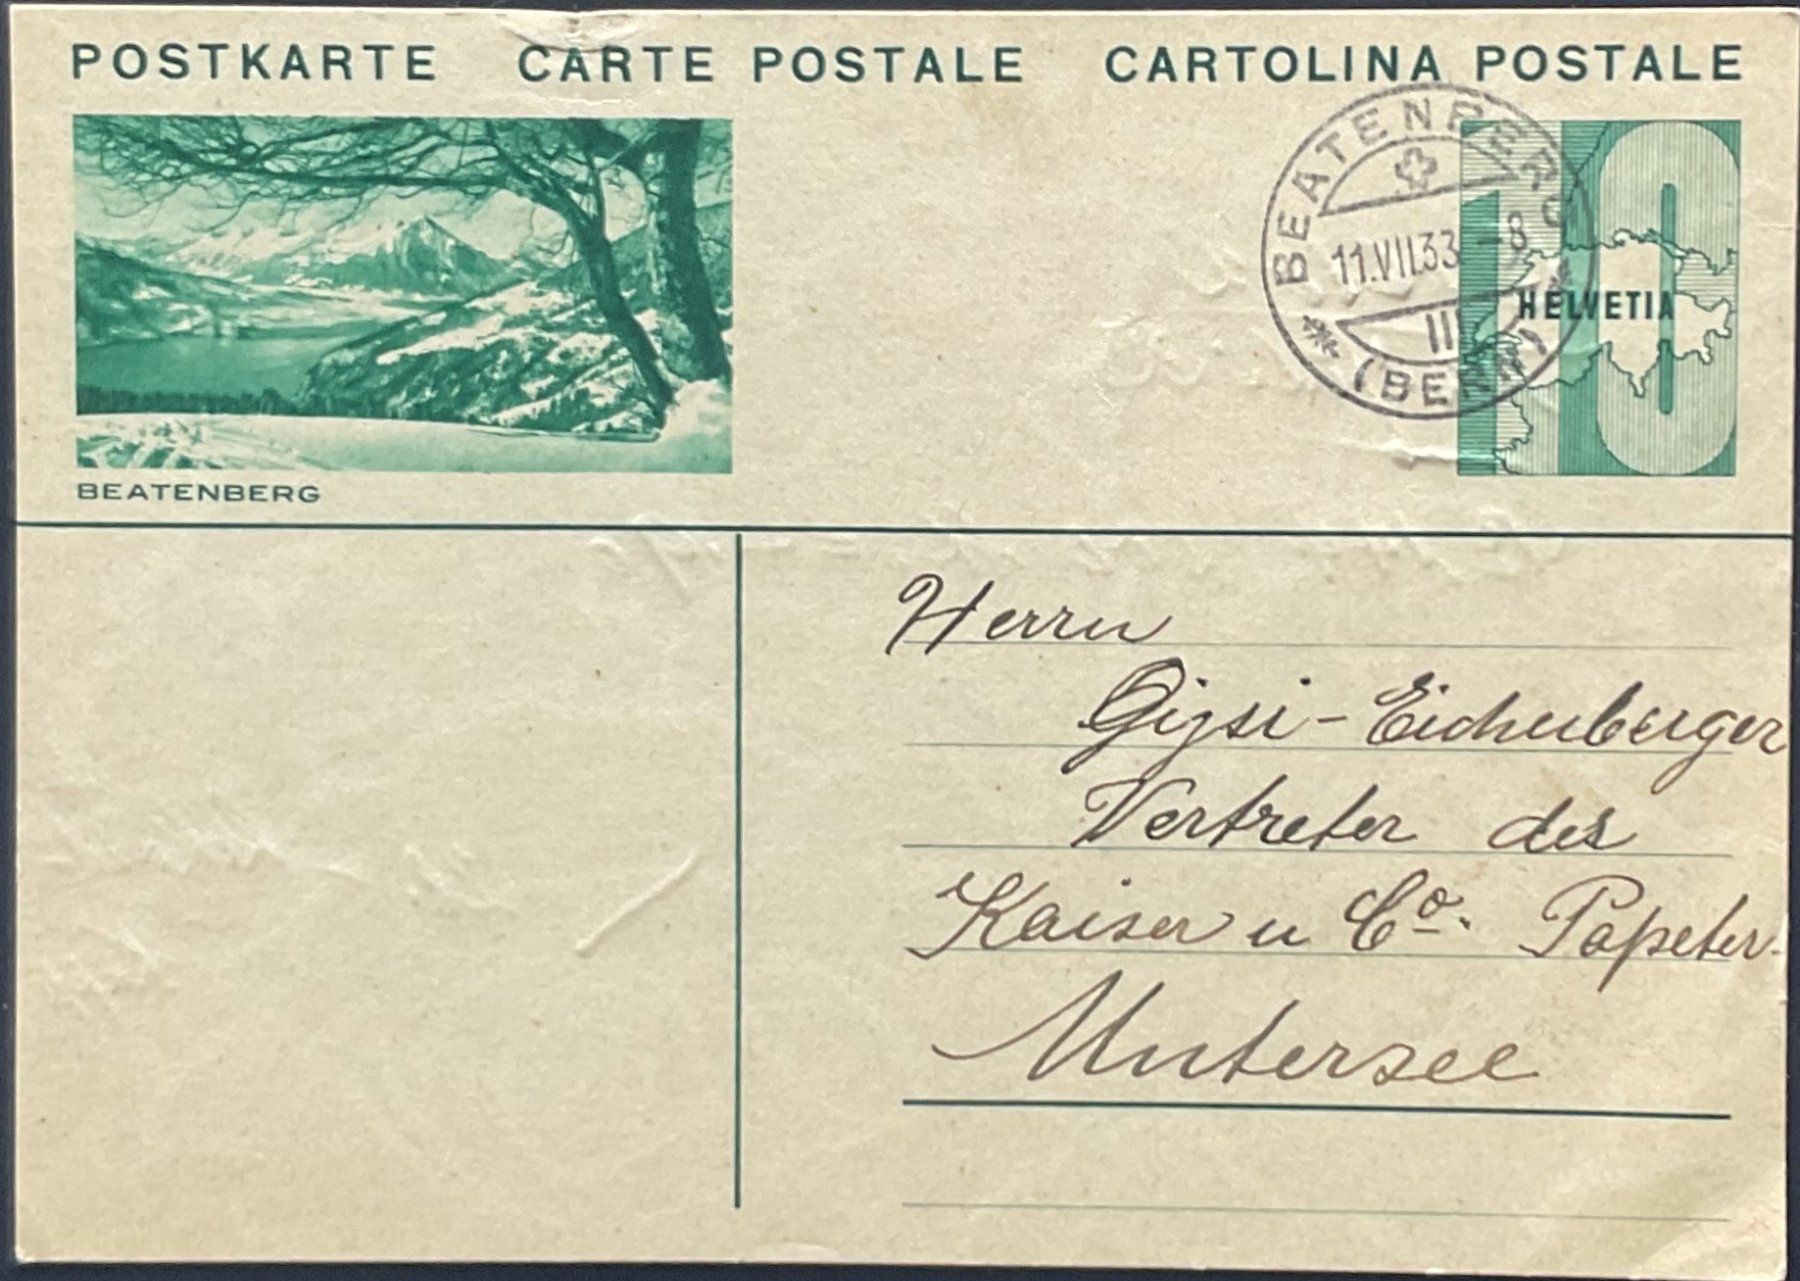 POSTKARTE CARTE POSTALE CARTOLINA POSTALE
BEATENBERG
(BERN)
11.VII.33 -8
III
10
HELVETIA
BEATENBERG
Herrn
Gysi-Eichenberger
Vertreter des
Kaiser u Co. Papeter.
Untersee